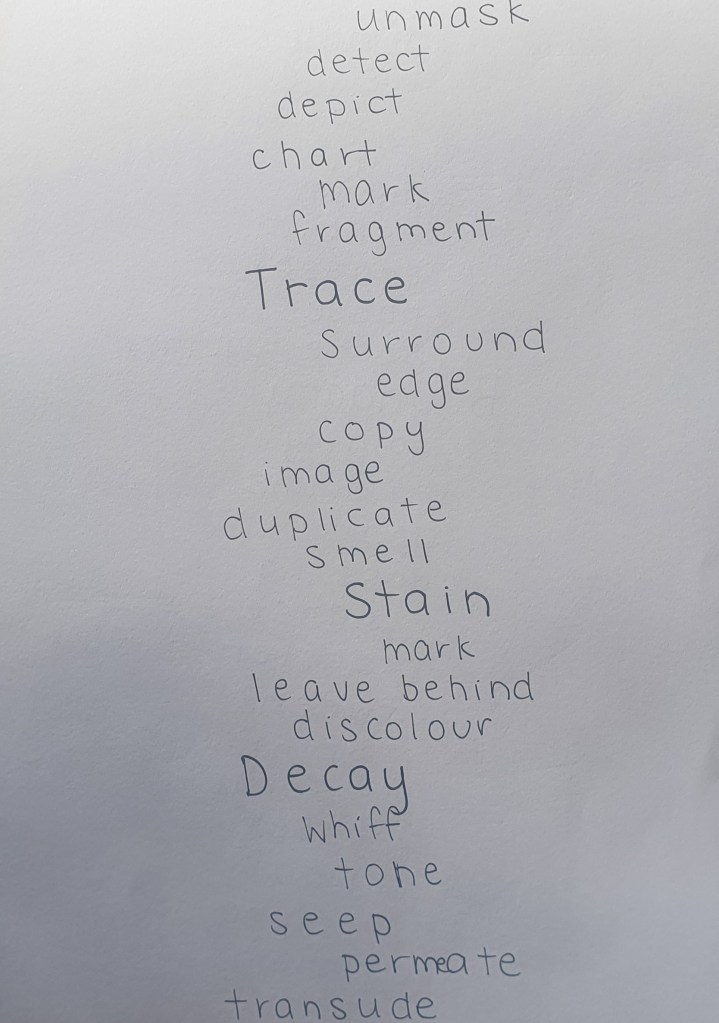 unmask
detect
depict
chart
mark
fragment
Trace
surround
edge
copy
image
duplicate
smell
Stain
mark
leave behind
discolour
Decay
whiff
tone
seep
permeate
transude